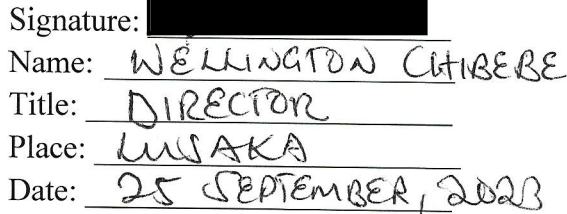 Signature:
Name: WELLINGTON CHIBEBE
Title: DIRECTOR
Place: LUSAKA
Date: 25 SEPTEMBER, 2023